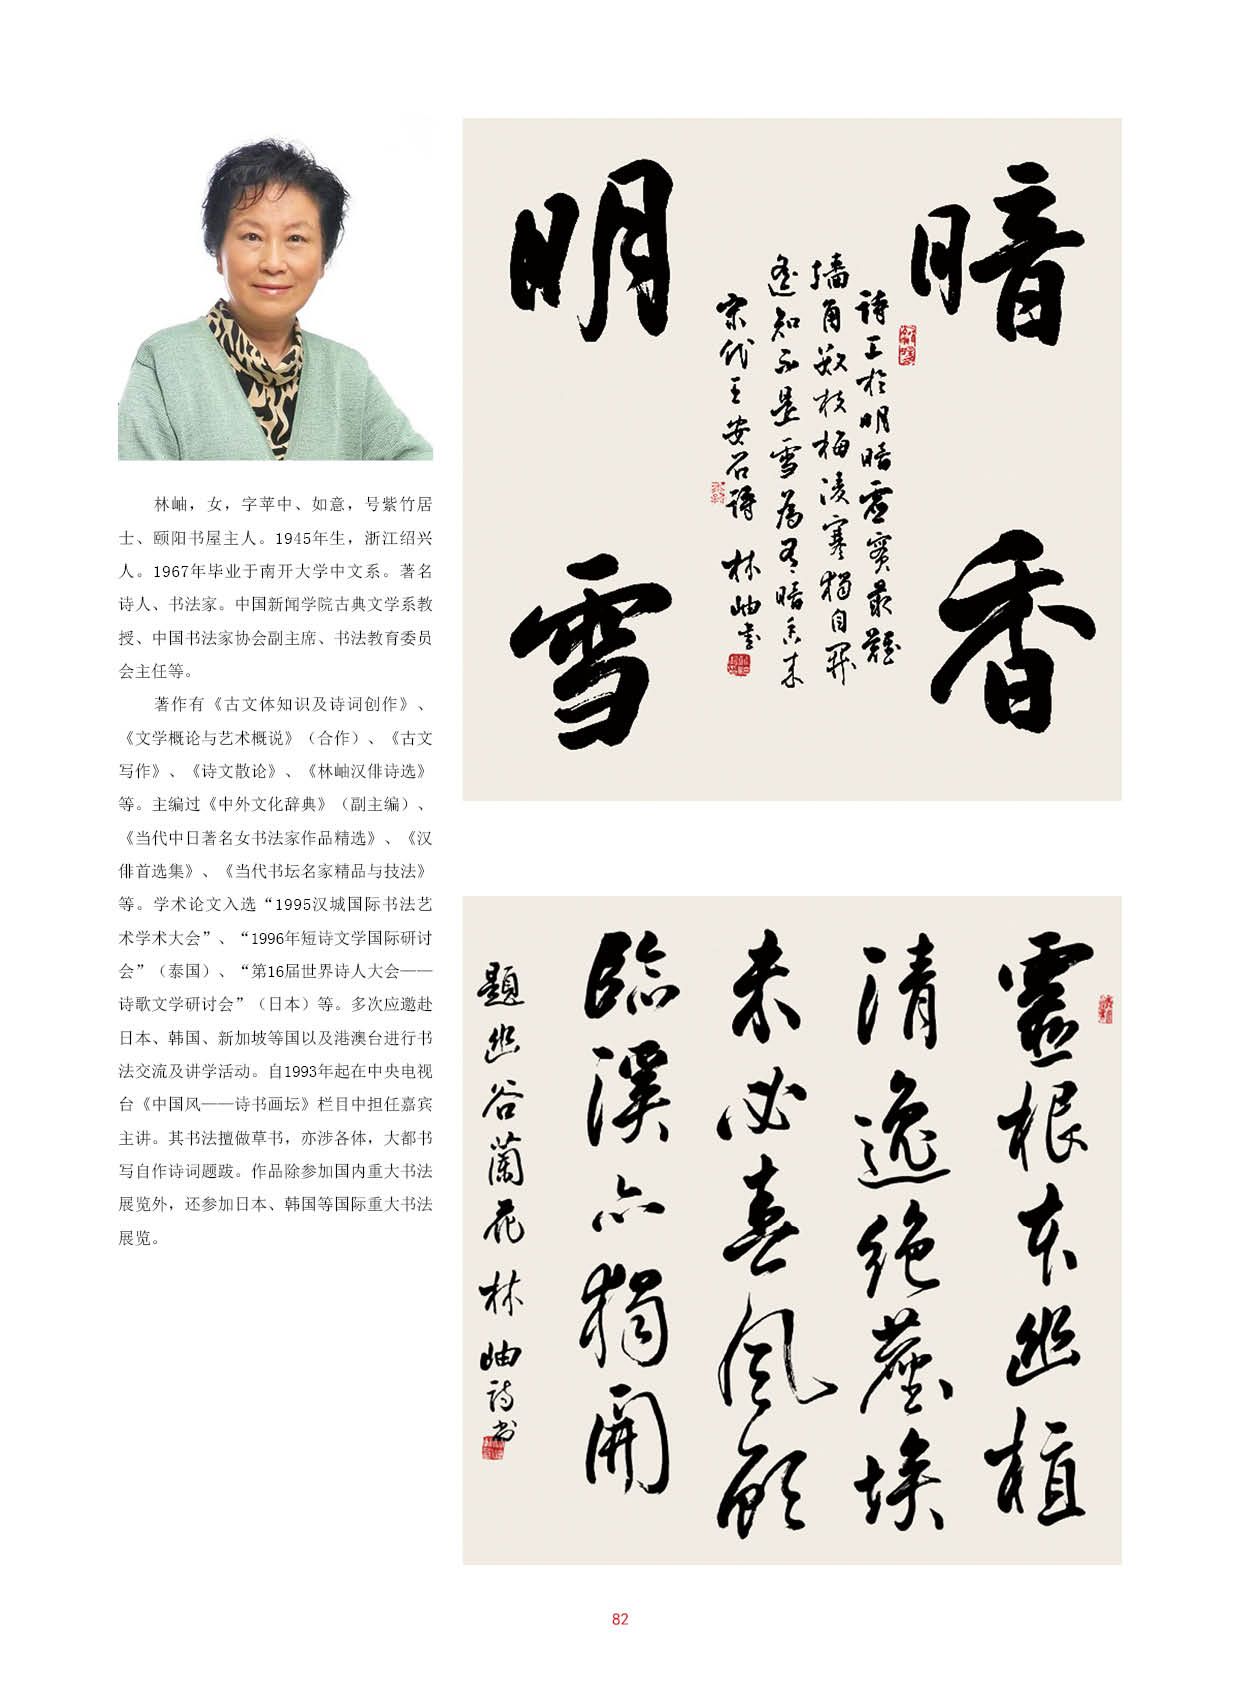 林岫，女，字苹中、如意，号紫竹居
士、颐阳书屋主人。1945年生，浙江绍兴
人。1967年毕业于南开大学中文系。著名
诗人、书法家。中国新闻学院古典文学系教
授、中国书法家协会副主席、书法教育委员
会主任等。
著作有《古文体知识及诗词创作》、
《文学概论与艺术概说》（合作）、《古文
写作》、《诗文散论》、《林岫汉俳诗选》
等。主编过《中外文化辞典》（副主编）、
《当代中日著名女书法家作品精选》、《汉
俳首选集》、《当代书坛名家精品与技法》
等。学术论文入选“1995汉城国际书法艺
术学术大会”、“1996年短诗文学国际研讨
会”（泰国）、“第16届世界诗人大会——
诗歌文学研讨会”（日本）等。多次应邀赴
日本、韩国、新加坡等国以及港澳台进行书
法交流及讲学活动。自1993年起在中央电视
台《中国风——诗书画坛》栏目中担任嘉宾
主讲。其书法擅做草书，亦涉各体，大都书
写自作诗词题跋。作品除参加国内重大书法
展览外，还参加日本、韩国等国际重大书法
展览。
暗香
明雪
诗工于明暗虚实最难
墙角数枝梅凌寒独自開
遥知不是雪為有暗香来
宋代王安石詩 林岫书
靈根本幽植
清逸絶塵埃
未必喜風顧
臨溪亦獨開
題幽谷蘭花 林岫诗书
82